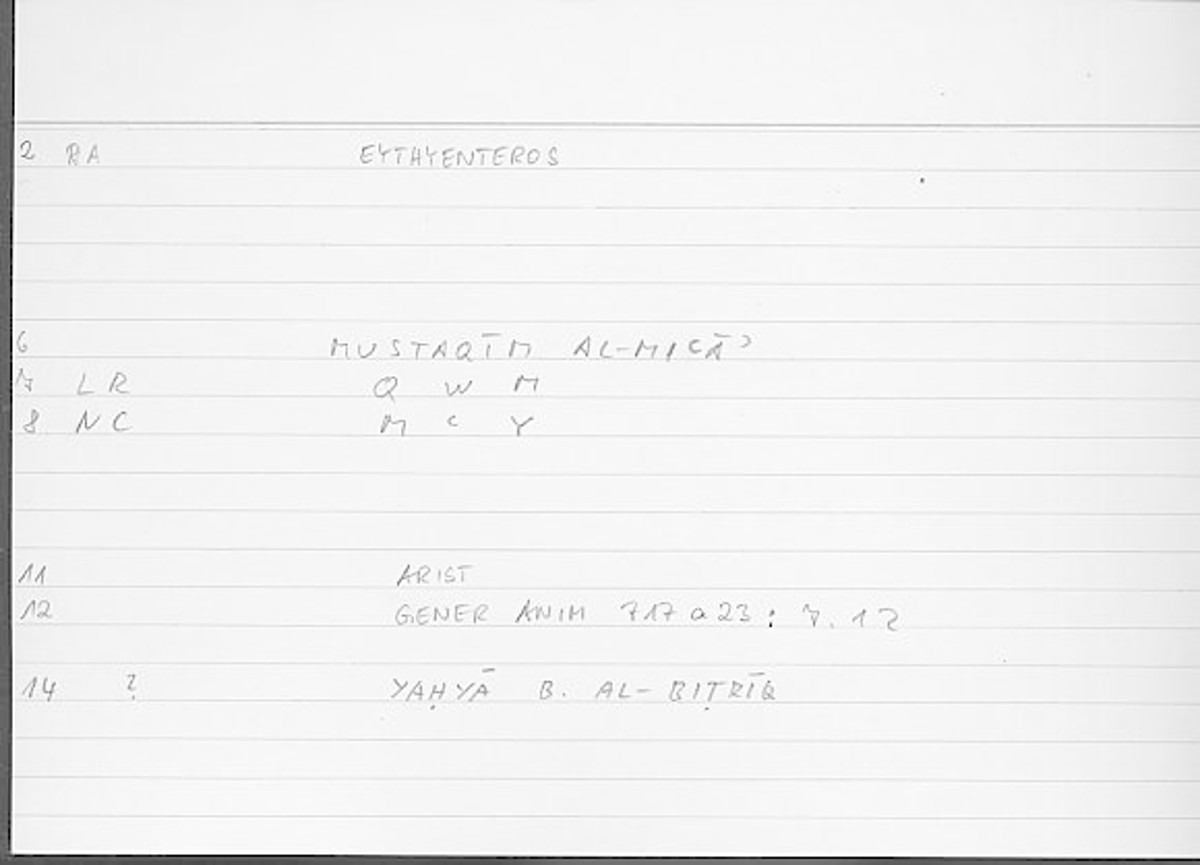 2 RA EYTHYENTEROS
6 MUSTAQĪM AL-MIʿĀʾ
7 LR Q W M
8 NC M ʿ Y
11 ARIST
12 GENER ANIM 717 a 23 : 7.12
14 ? YAḤYĀ B. AL-BIṬRĪQ